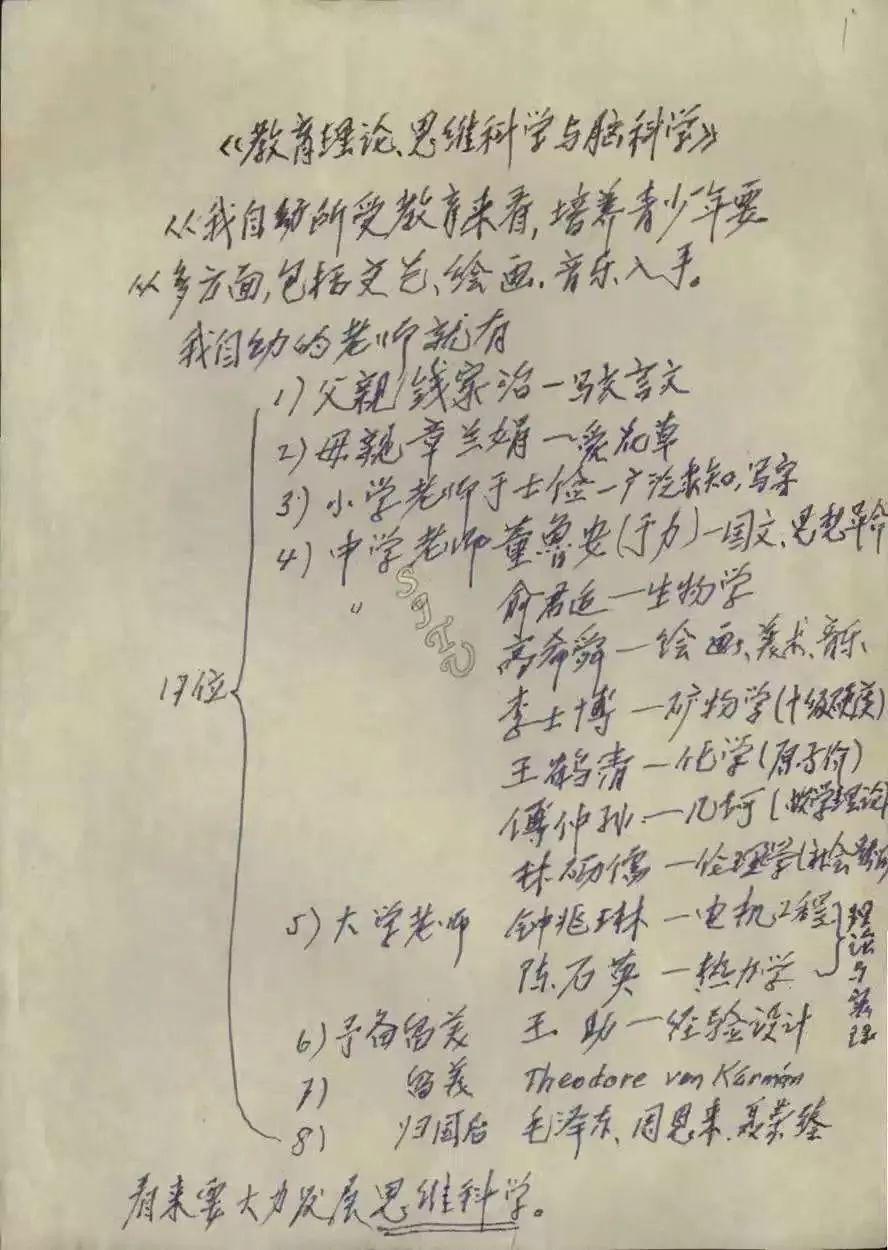 《教育理论、思维科学与脑科学》
从我自幼所受教育来看,培养青少年要
从多方面,包括文艺、绘画、音乐入手。
我自幼的老师就有
17位
1) 父亲 钱家治—写文言文
2) 母亲 章兰娟—爱花草
3) 小学老师于士俭—广泛求知,写字
4) 中学老师 董鲁安(于力)—国文、思想革命
〃 俞君适—生物学
高希舜—绘画、美术、音乐
李士博—矿物学(十级硬度)
王鹤清—化学(原子价)
傅仲孙—几何(数学理论
林砺儒—伦理学(社会
5) 大学老师 钟兆琳—电机工程
陈石英—热力学
理论与实际
6) 予备留美 王助—经验设计
7) 留美 Theodore von Kármán
8) 归国后 毛泽东、周恩来、聂荣臻
看来要大力发展思维科学。
SJTU